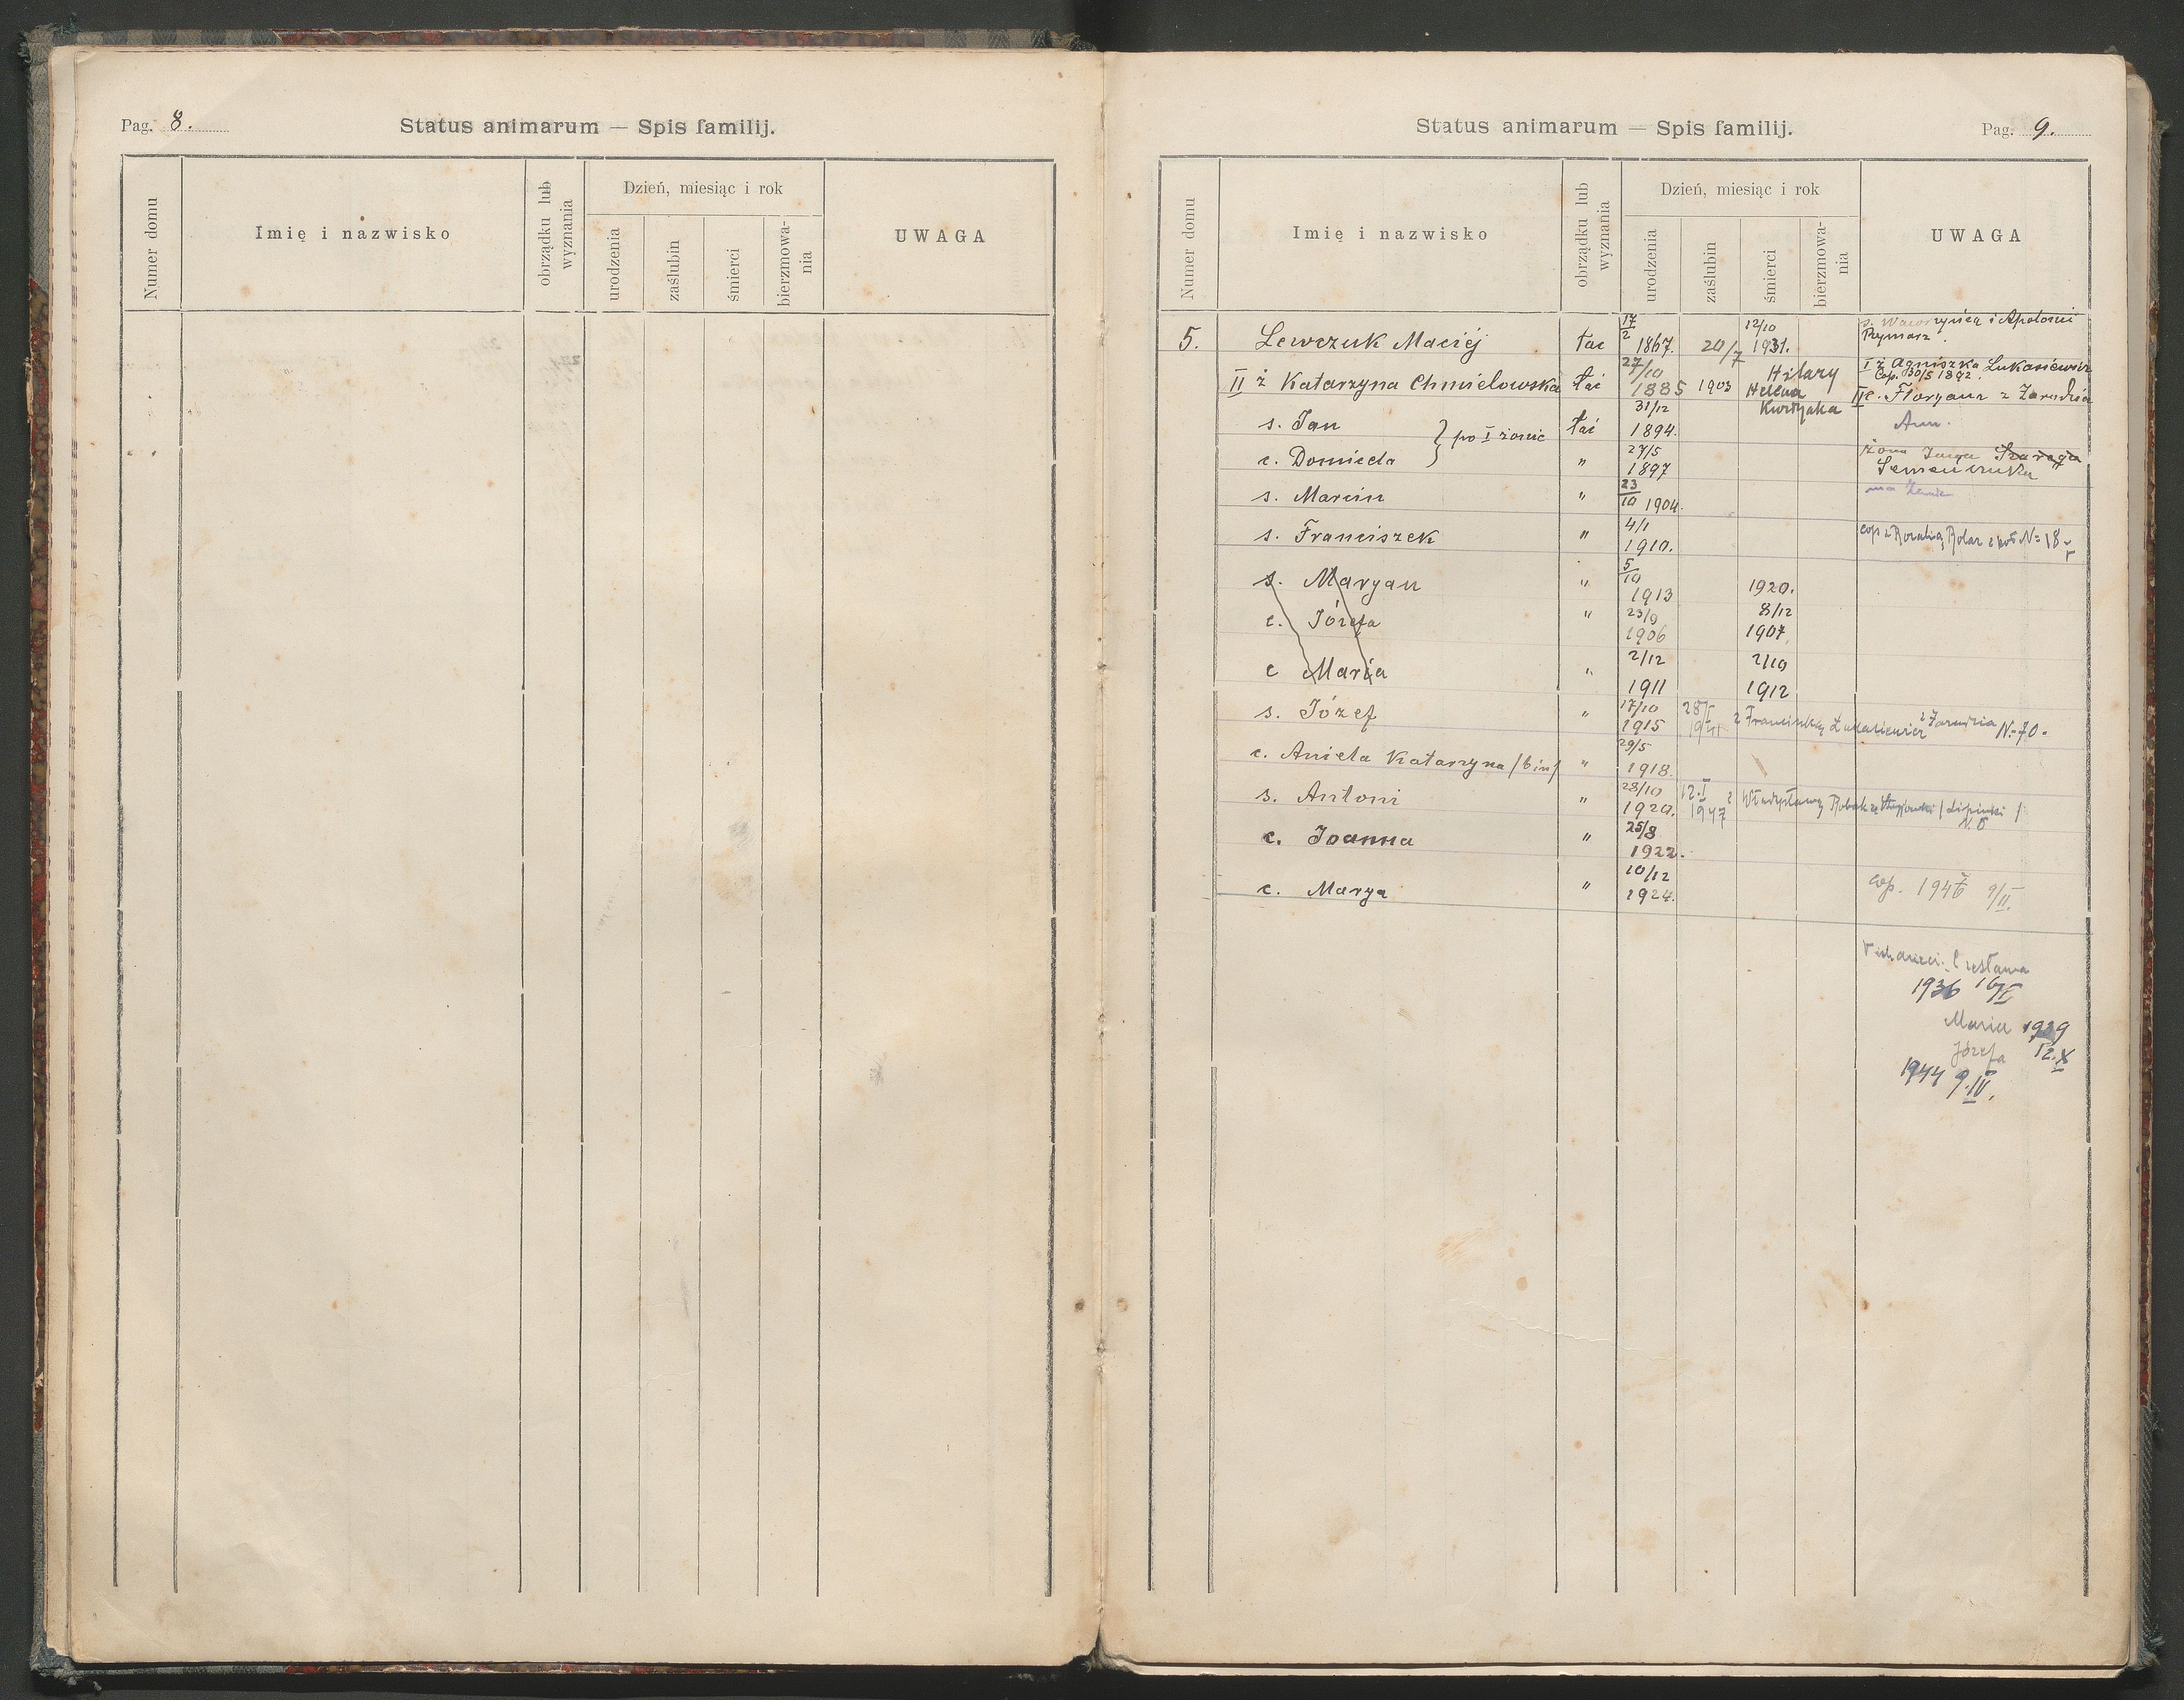 Pag. 8.
Status animarum — Spis familij.
Numer domu
Imię i nazwisko
obrządku lub wyznania
Dzień, miesiąc i rok
urodzenia
zaślubin
śmierci
bierzmowa-
nia
UWAGA
Status animarum — Spis familij.
Pag. 9.
Numer domu
Imię i nazwisko
obrządku lub wyznania
Dzień, miesiąc i rok
urodzenia
zaślubin
śmierci
bierzmowa-
nia
UWAGA
5. Lewczuk Maciéj łac 17/2 1867. 20/7 12/10 1931. s. Wawrzyńca i Apolonii
II ż Katarzyna Chmielowska łać 27/10 1885 1903 Hilary Helena I ż Agniszka Łukasiéwicz
Cop. 30/5 1892.
II c. Floryana z Zarudzia
s. Jan } po I żonie łać 31/12 1894.
c. Domicela " 27/5 1897 żona
s. Marcin " 23/10 1904.
s. Franciszek " 4/1 1910. cop z Rozalią N= 18
s. Maryan " 5/10 1913 1920.
c. Józefa " 23/9 1906 8/12 1907.
c Maria " 2/12 1911 2/10 1912
s. Józef " 17/10 1915 z Franciszką Łukasiewicz z Zarudzia N=70.
c. Aniela Katarzyna /bin/ " 29/5 1918.
s. Antoni " 28/10 1920. 12.I 1947 z Władysławą
c. Joanna " 25/8 1922.
c. Marya " 10/12 1924. cop. 194 9/II.
1936
Maria 1939
Józefa 12.X
1944 9.IV.